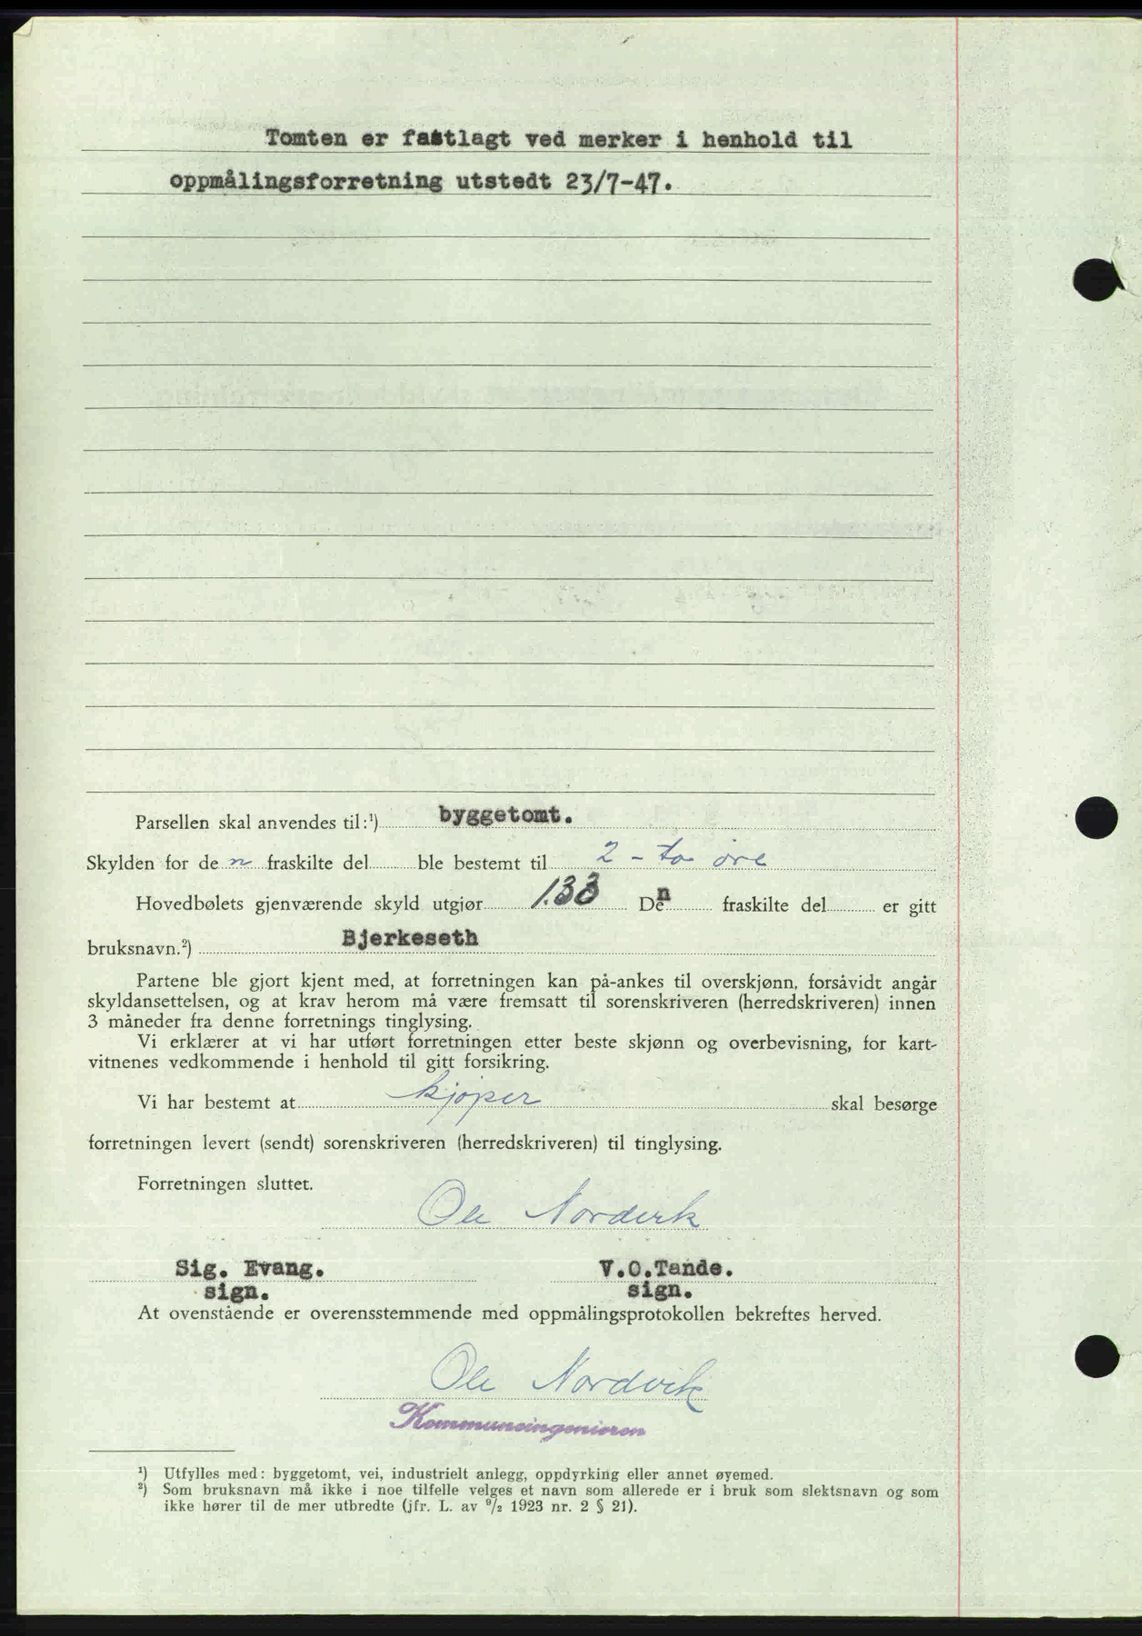 Tomten er fastlagt ved merker i henhold til
oppmålingsforretning utstedt 23/7-47.
Parsellen skal anvendes til:¹) byggetomt.
Skylden for de n fraskilte del ble bestemt til 2 - to øre
Hovedbølets gjenværende skyld utgjør 1.33 Den fraskilte del er gitt
bruksnavn.²) Bjerkeseth
Partene ble gjort kjent med, at forretningen kan på-ankes til overskjønn, forsåvidt angår
skyldansettelsen, og at krav herom må være fremsatt til sorenskriveren (herredskriveren) innen
3 måneder fra denne forretnings tinglysing.
Vi erklærer at vi har utført forretningen etter beste skjønn og overbevisning, for kart-
vitnenes vedkommende i henhold til gitt forsikring.
Vi har bestemt at kjøper skal besørge
forretningen levert (sendt) sorenskriveren (herredskriveren) til tinglysing.
Forretningen sluttet.
Ole Nordvik
Sig. Evang. V.O.Tande.
sign. sign.
At ovenstående er overensstemmende med oppmålingsprotokollen bekreftes herved.
Ole Nordvik
Kommuneingeniøren
¹) Utfylles med: byggetomt, vei, industrielt anlegg, oppdyrking eller annet øyemed.
²) Som bruksnavn må ikke i noe tilfelle velges et navn som allerede er i bruk som slektsnavn og som
ikke hører til de mer utbredte (jfr. L. av ⁹/₂ 1923 nr. 2 § 21).